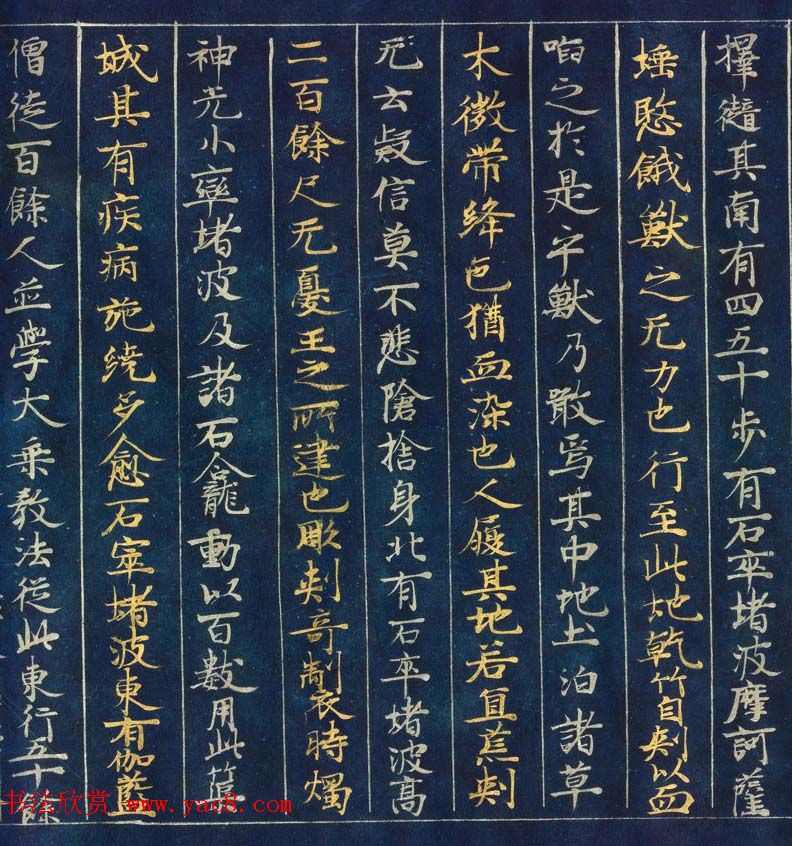 擇䜟其南有四五十步有石卒堵波摩訶薩
埵愍餓獸之无力也行至此地乾竹自刺以血
啗之於是乎獸乃噉焉其中地土洎諸草
木微帶絳色猶血染也人履其地若負蕉刺
无云疑信莫不悲愴捨身北有石卒堵波高
二百餘尺无憂王之所建也彫刻奇制時燭
神光小窣堵波及諸石龕動以百數周此塋
城其有疾病旋繞多愈石窣堵波東有伽藍
僧徒百餘人並學大乘教法從此東行五十餘
书法欣赏 www.yac8.com